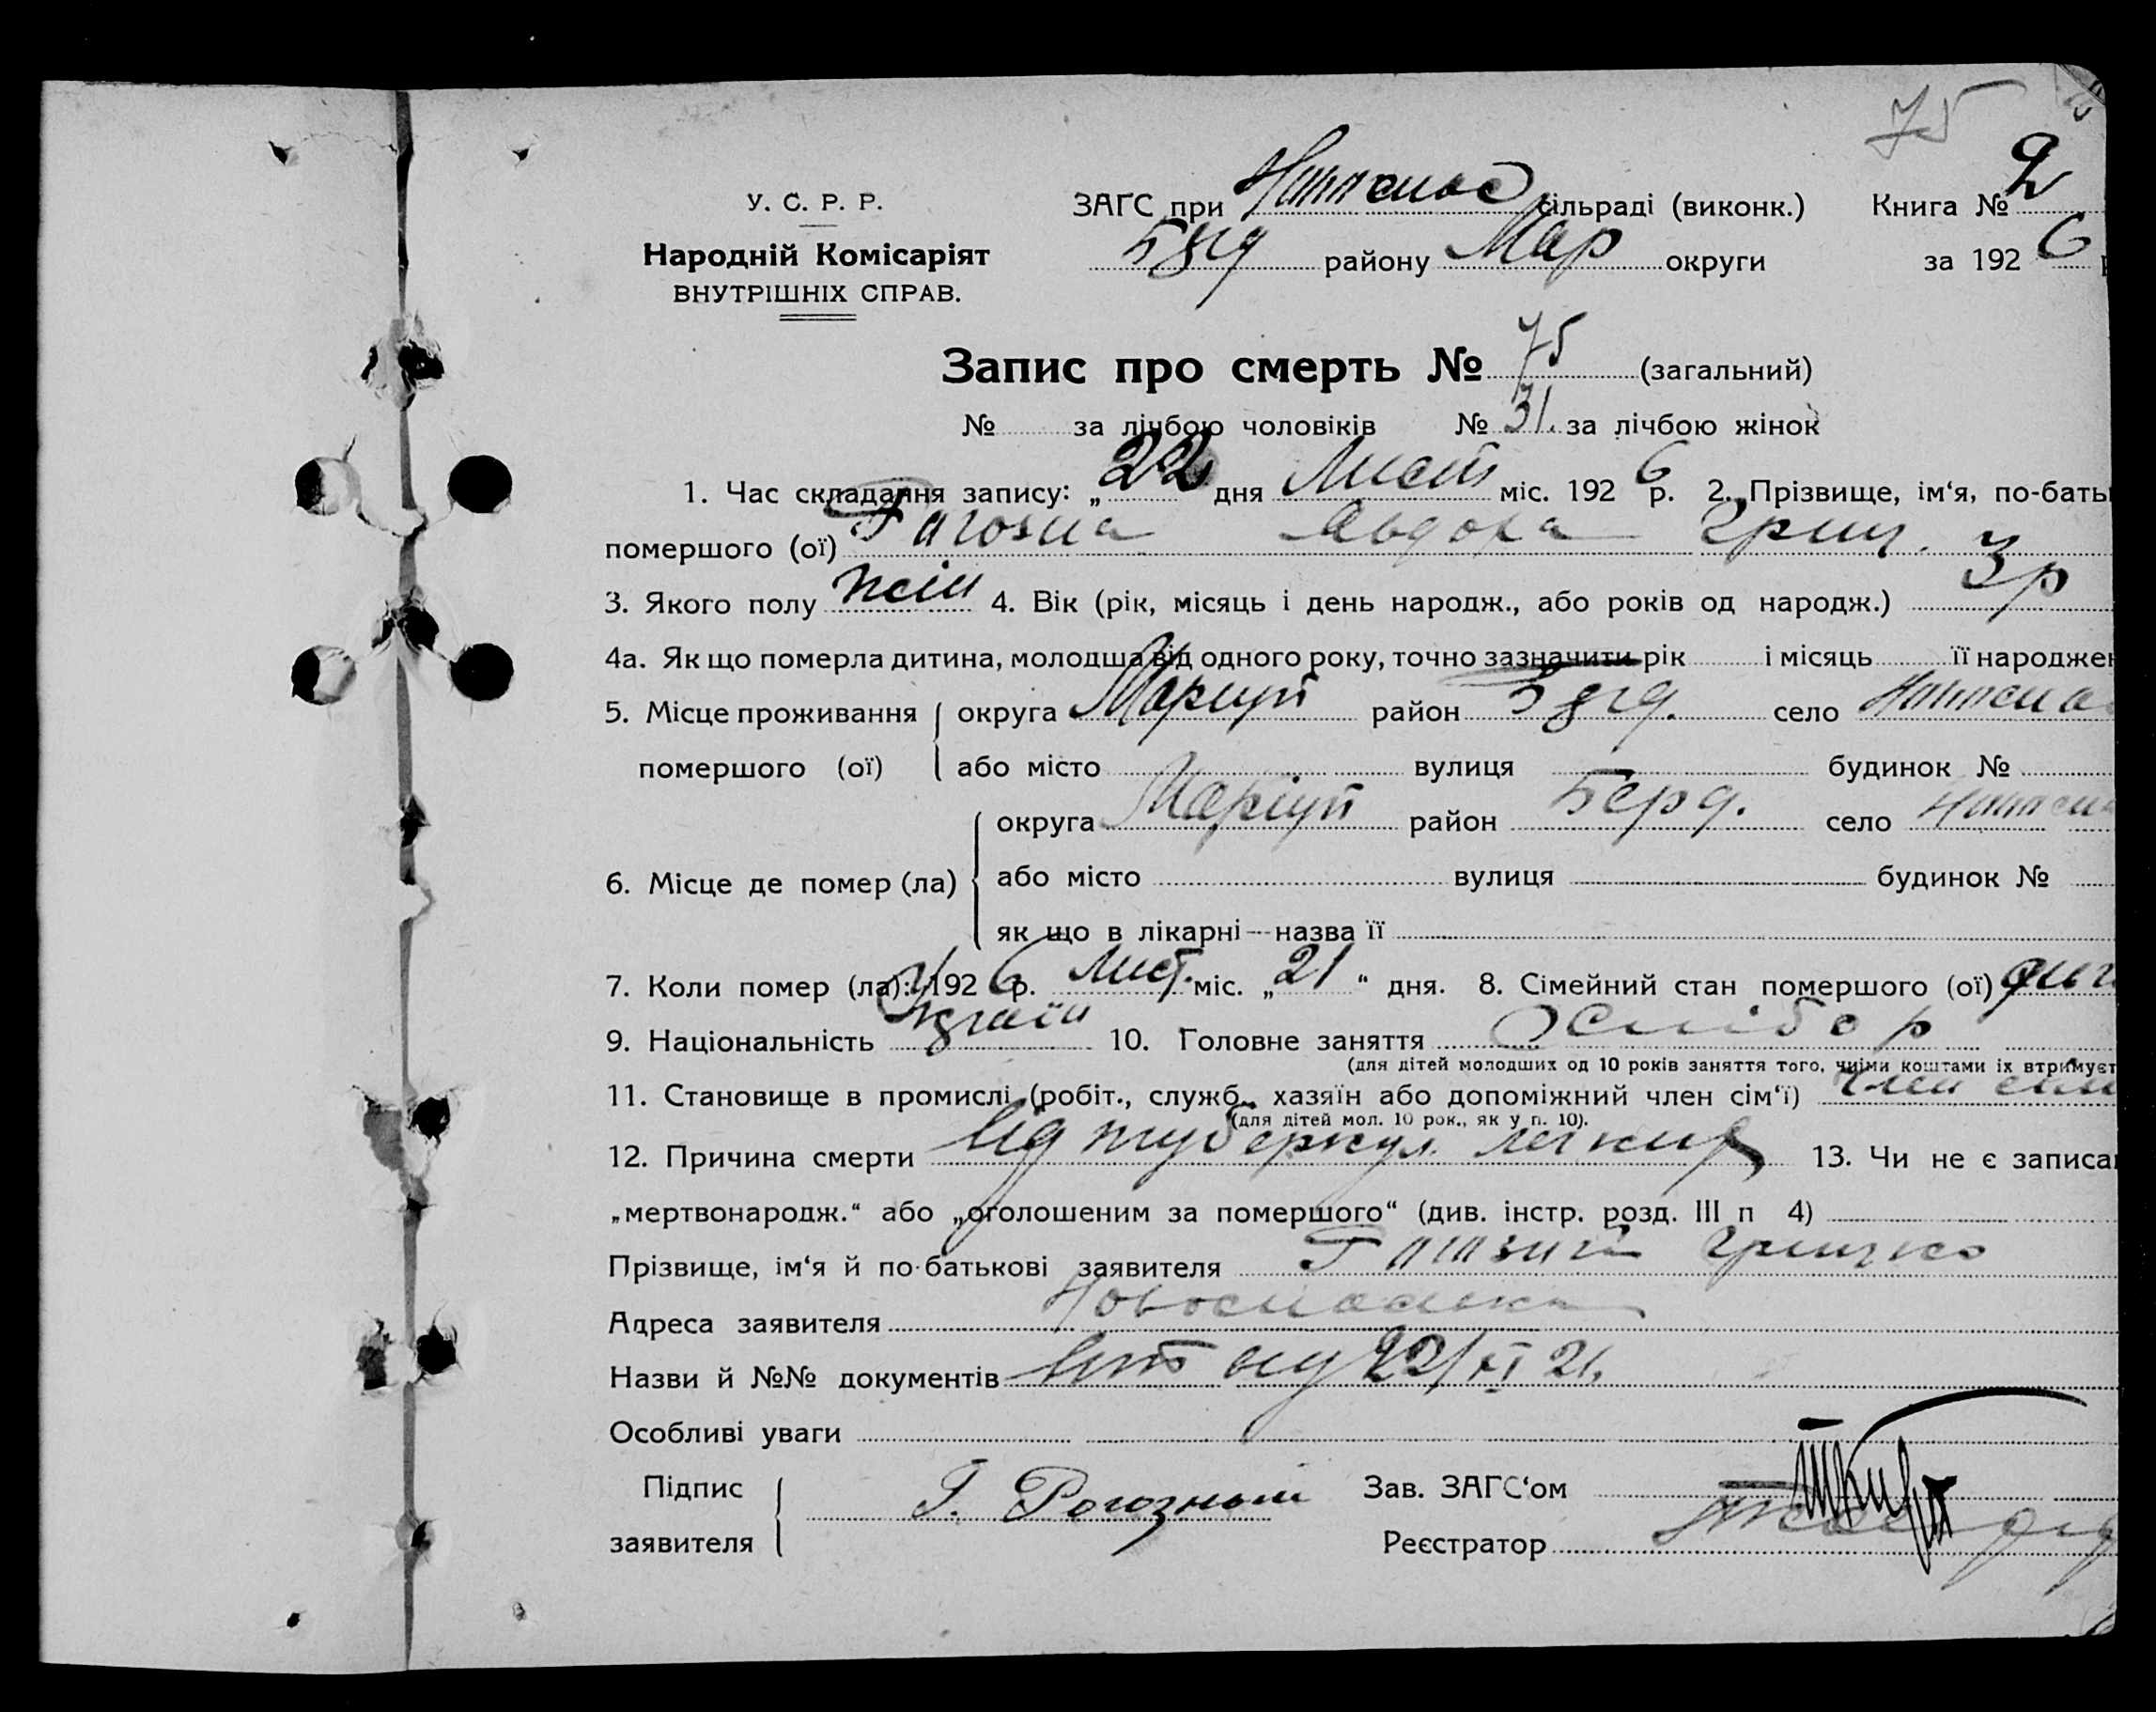 75
У. С. Р. Р.
Народній Комісаріят
ВНУТРІШНІХ СПРАВ.
ЗАГС при сільраді (виконк.) Книга № 2
району Мар округи за 192 6 р
Запис про смерть № 75 (загальний)
№ за лічбою чоловіків № 31. за лічбою жінок
1. Час складання запису: „ 22 дня Лист міс. 192 6 р. 2. Прізвище, ім‘я, по-баты
помершого (ої) Явдоха Гриц. 3 р
3. Якого полу жін 4. Вік (рік, місяць і день народж., або років од народж.)
4а. Як що померла дитина, молодша від одного року, точно зазначити рік і місяць її народжен
5. Місце проживання округа Маріуп район село
помершого (ої) або місто вулиця будинок №
округа Маріуп район Берд. село
6. Місце де помер (ла) або місто вулиця будинок №
як що в лікарні — назва її
7. Коли помер (ла): 192 6 р. Лист. міс. „ 21 “ дня. 8. Сімейний стан помершого (ої)
9. Національність 10. Головне заняття
(для дітей молодших од 10 років заняття того, чиїми коштами їх втримуєт
11. Становище в промислі (робіт., служб., хазяїн або допоміжний член сім‘ї) член
(для дітей мол. 10 рок., як у п. 10).
12. Причина смерти від туберкул. легких 13. Чи не є записан
„мертвонародж.“ або „оголошеним за помершого“ (див. інстр. розд. III п 4)
Прізвище, ім‘я й по-батькові заявителя Грицько
Адреса заявителя
Назви й №№ документів 22/XI
Особливі уваги
Підпис заявителя Г. Рогозный Зав. ЗАГС‘ом
Реєстратор